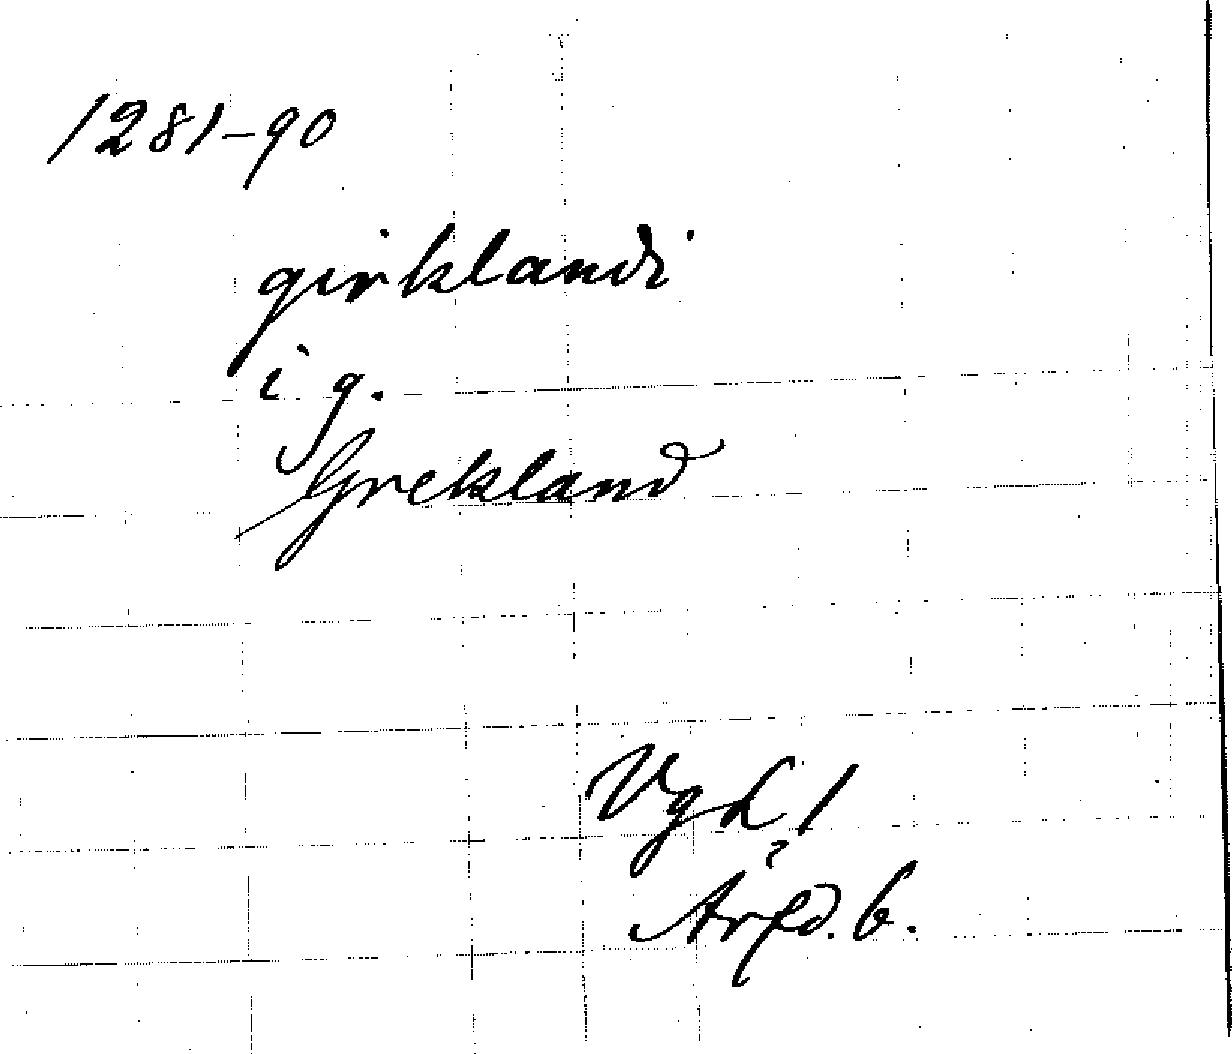 1281-90
girklandi
i g.
Grekland
VgL 1
Arfd. b.